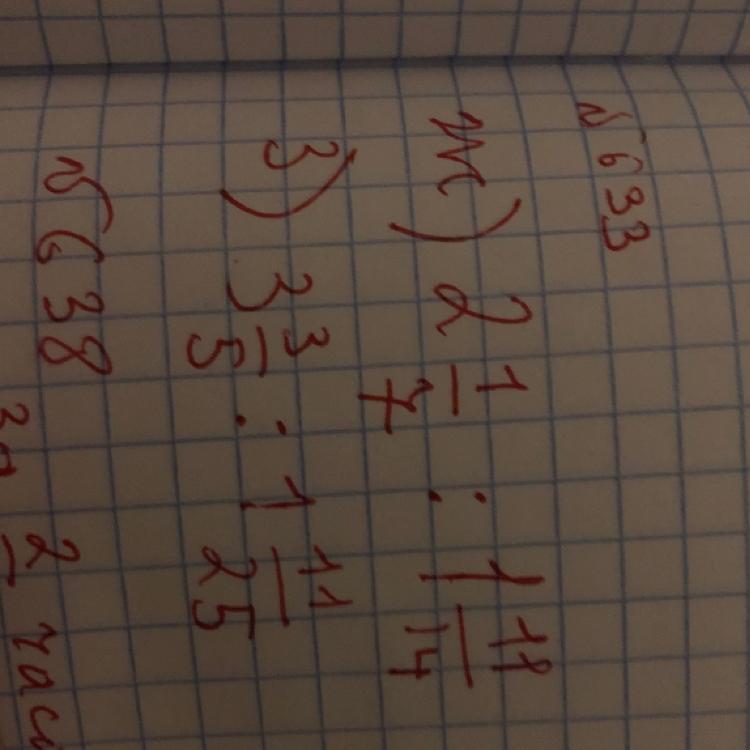 № 633
ж) 2 1/7 : 1 11/14
з) 3 3/5 : 1 11/25
№ 638
2